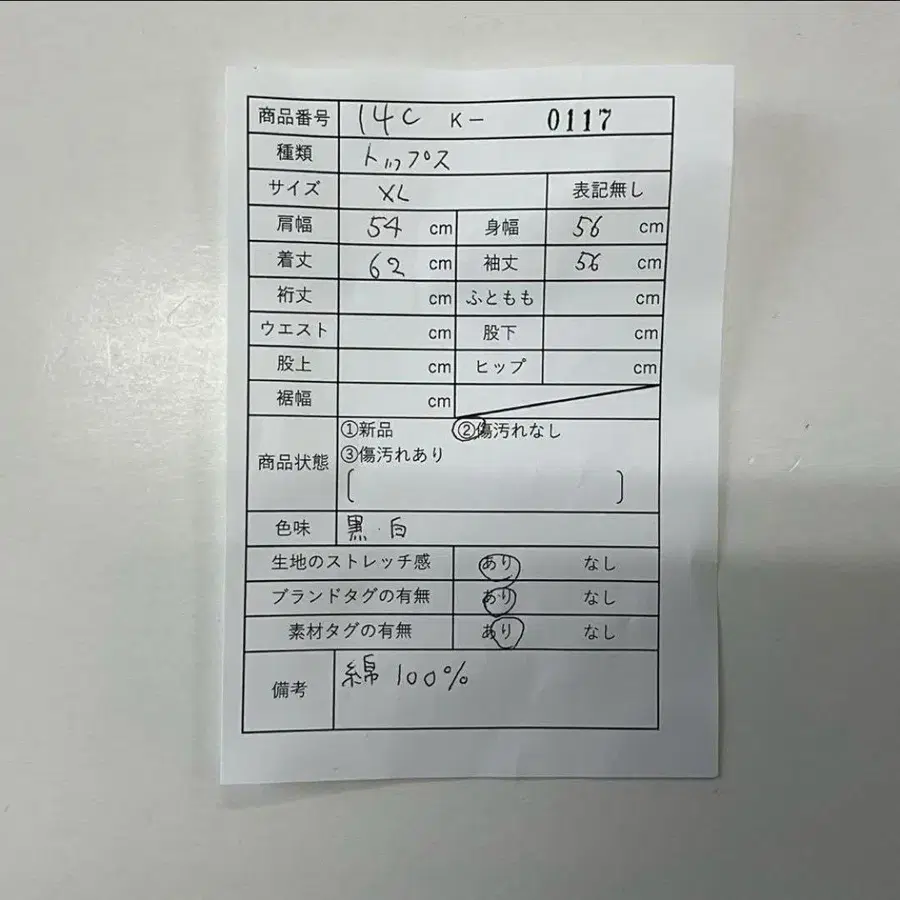 商品番号 14C K- 0117
種類 トップス
サイズ XL 表記無し
肩幅 54 cm 身幅 56 cm
着丈 62 cm 袖丈 56 cm
裄丈 cm ふともも cm
ウエスト cm 股下 cm
股上 cm ヒップ cm
裾幅 cm
商品状態 ①新品 ②傷汚れなし
③傷汚れあり
[ ]
色味 黒・白
生地のストレッチ感 あり なし
ブランドタグの有無 あり なし
素材タグの有無 あり なし
備考 綿 100%